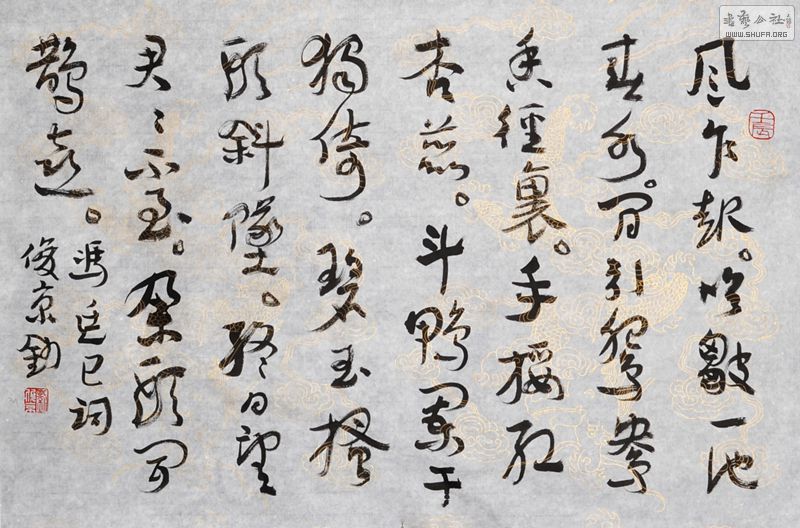 書藝公社
WWW.SHUFA.ORG
壬辰
風乍起。吹皺一池
春水。閒引鴛鴦
香徑裏。手挼紅
杏蕊。斗鴨闌干
獨倚。碧玉搔
頭斜墜。終日望
君〻不至。舉頭聞
鵲喜。
馮延巳詞
俊京